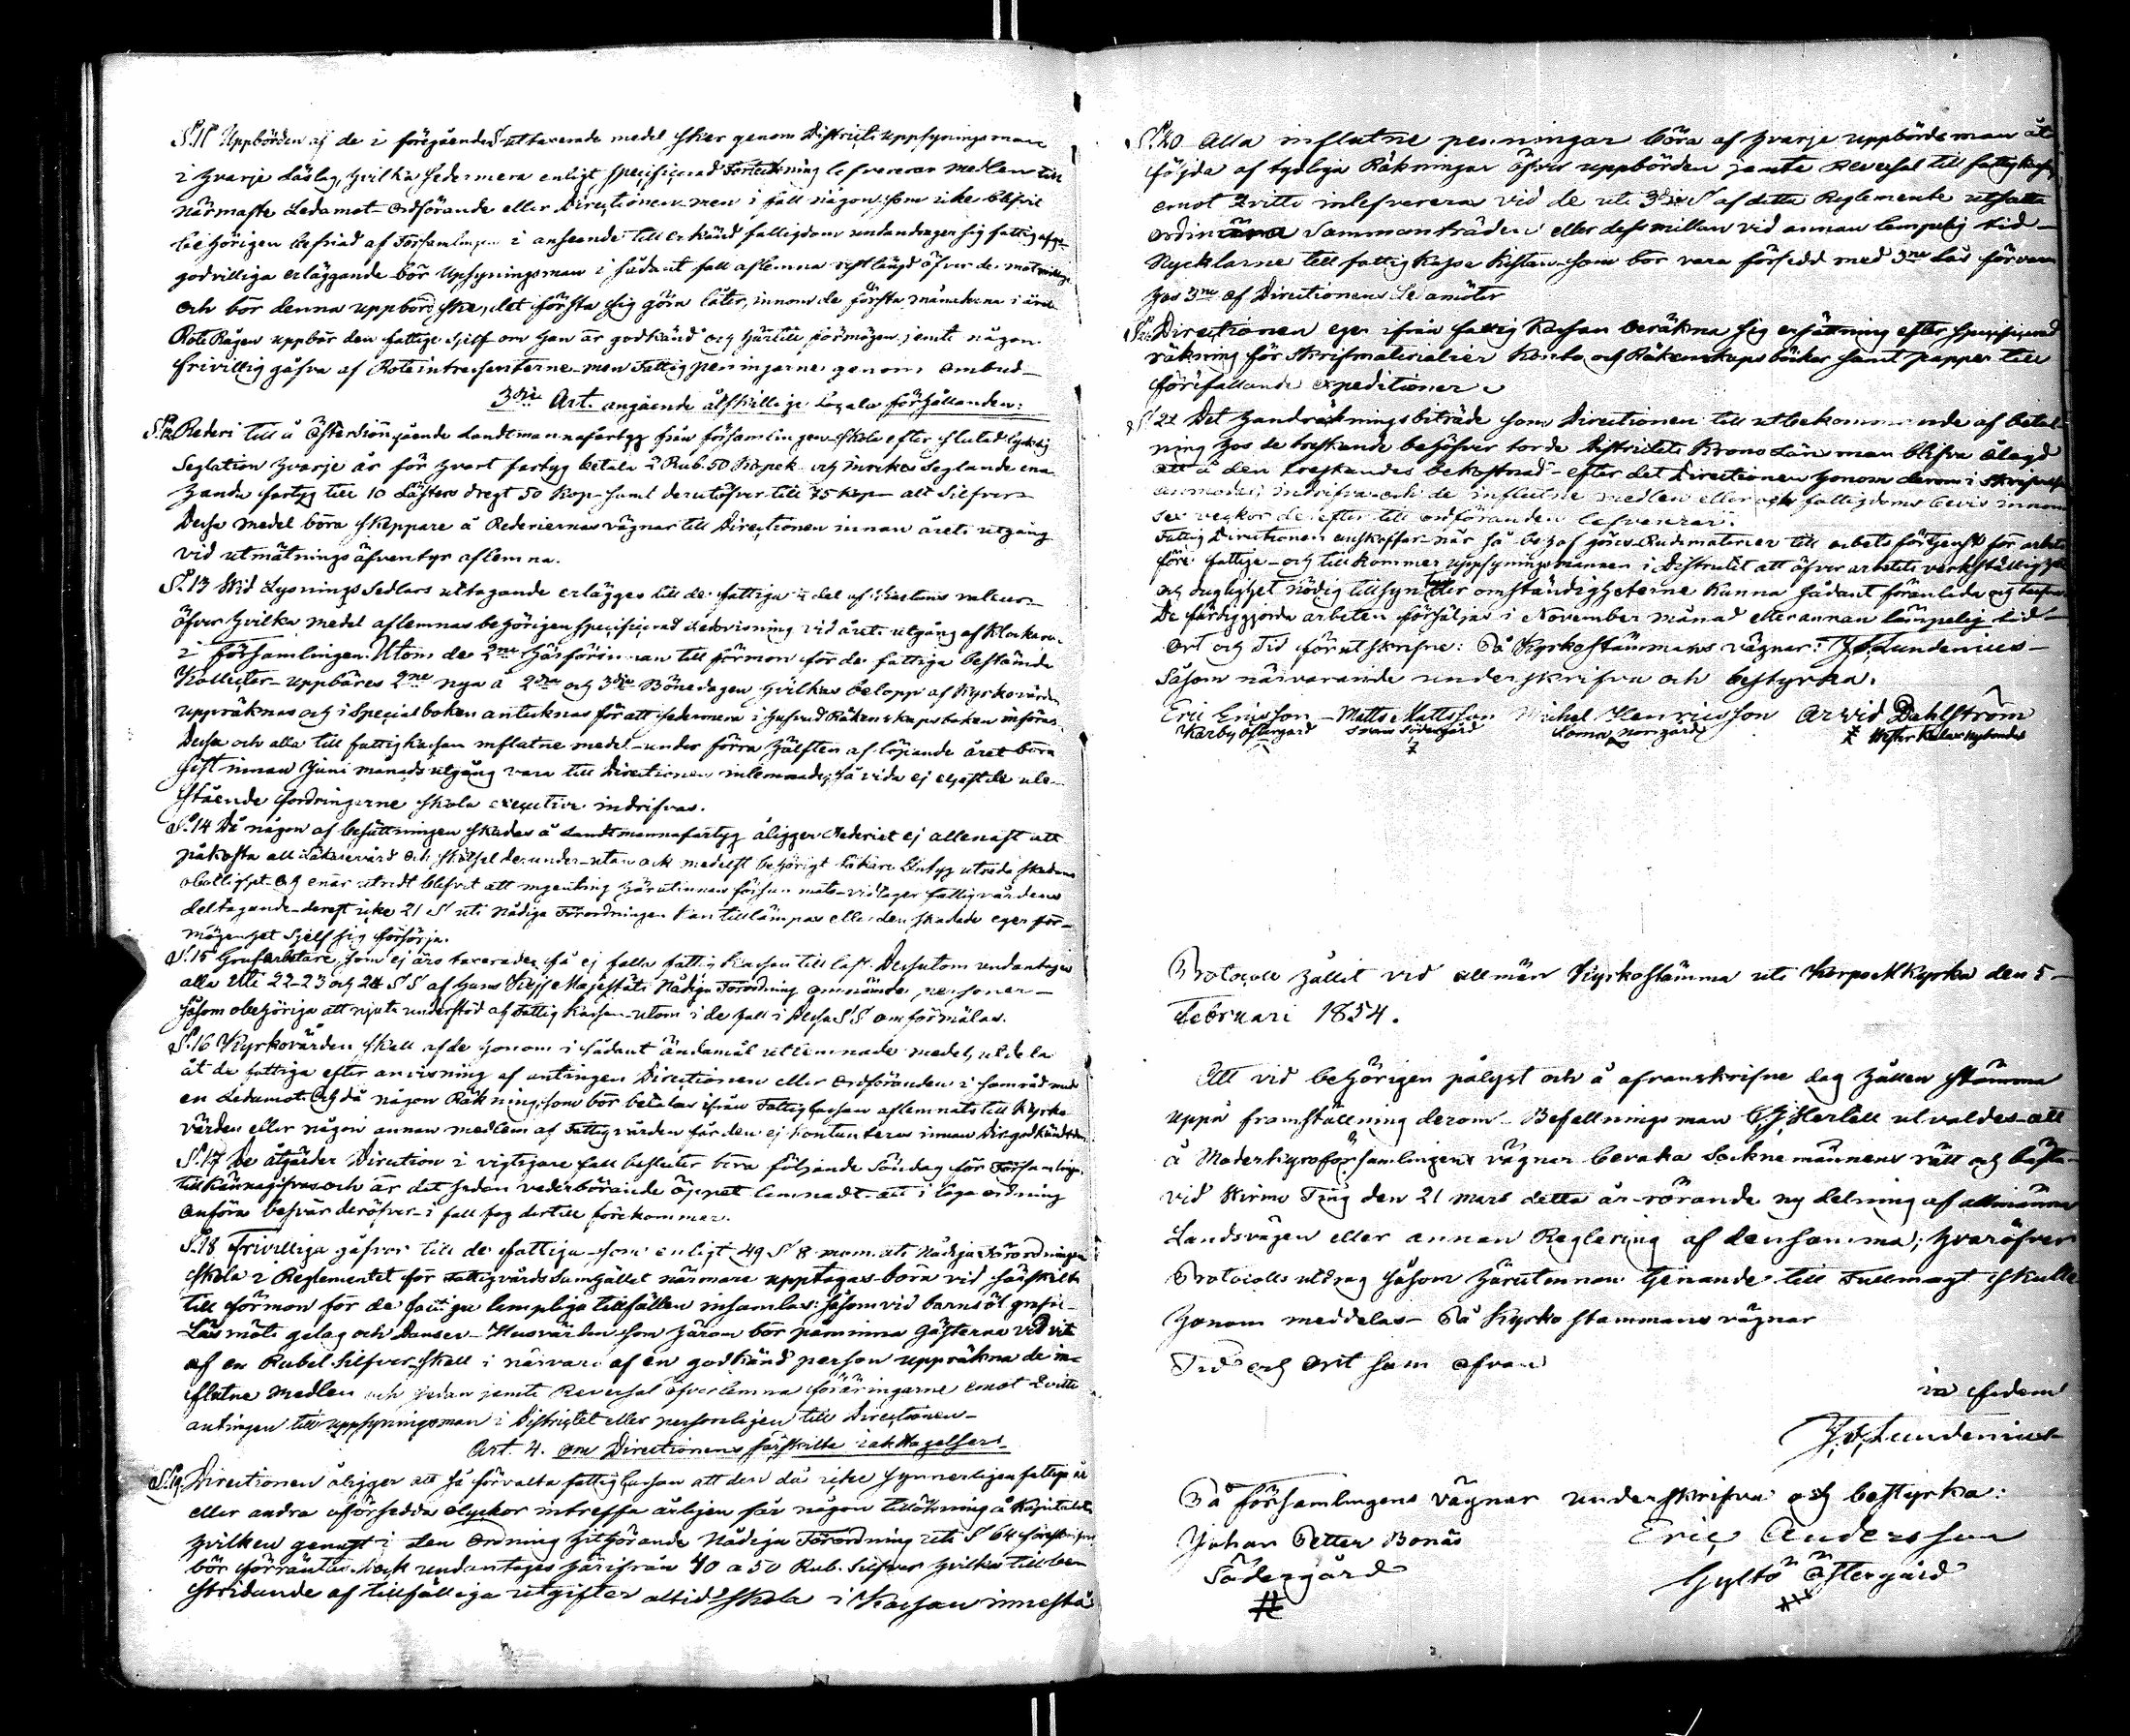 S. 11 Uppbörden af de i föregående S uttaxerade medel sker genom Districts uppsyningsman
i hvarje Låslag, hvilka sedermera enligt specificerad Förteckning lefvererar medlen till
närmaste Ledamot Ordförande eller Directionen men i fall någon som icke blifvit
behörigen befriad af Församlingen i anseende till erkänd fattigdom undandrager sig fattigafg
godvilliga erläggande bör Upsyningsman i sådant fall aflemna restlängd öfver de
och bör denna uppbörd ske, det första sig göra låter, innom de första månaderna i året
Rote Rågen uppbär den fattige sjelf om han är godkänd och härtill förmögen jemte någon
frivillig gåfva af Roteintressenterne men Fattigpenningarne genom ombud
3dje Art. angående åtskillige Locala förhållanden:
S. 12 Rederi till å Östersiön gående Landtmannafartyg från församlingen skola efter slutad lycklig
Seglation hvarje år för hvart fartyg betala 2 Rub. 50 Kopek och inrikes Seglande ena
handa fartyg till 10 Lästers dregt 50 kop samt derutöfver till 75 kop allt Silfver
Dessa medel böra skeppare å Rederiernas vägnar till Directionen innan årets utgång
vid utmätnings äfventyr aflemna.
S. 13 Wid Lysnings Sedlars uttagande erlägges till de fattiga
öfver hvilka medel aflemnas behörigen specificerad Redovisning vid årets utgång af Klockaren
i församlingen. Utom de 2ne härförinnan till förmon för de fattige bestämde
Kollecter uppbäres 2ne nya å 2dra och 3dje Bönedagen hvilkas belopp af Kyrkovärden
uppräknas och i Specialboken antecknas för att sedermera i hufvud Räkenskapsboken införas.
Dessa och alla till fattigkassan influtne medel under förra hälften af löpande året böra
sist innan Juni månads utgång vara till Directionen inlemnade, så vida ej
stående fordringarne skola executive indrifvas.
S. 14 Då någon af besättningen skadas å Landtmannafartyg åligger Rederiet ej allenast att
påkosta all Läkarevård och skötsel derunder utan ock medelst behörigt Läkare Intyg utreda skadans
obotlighet och enär utredt blifvit att ingenting härutinnan försummats vidtager fattigvårdens
deltagande derest icke 21 S uti Nådiga Förordningen kan tillämpas eller den skadade eger för-
mögenhet sjelf sig försörja.
S. 15 Grufarbetare, som ej äro taxerade, få ej falla fattig Kassan till last. Dessutom undantages
alla Uti 22-23 och 24 S S af Hans Kejse Majestäts Nådiga Förordning omnämnde personer
såsom obehöriga att njuta understöd af Fattig Kassan utom i de fall i dessa S S omförmälas.
S. 16 Kyrkovärden skall af de honom i sådant ändamål utlemnade medel, utdela
åt de fattiga efter anvisning af antingen Directionen eller Ordföranden i samråd med
en Ledamot. Och då någon Räkning, som bör betalas ifrån Fattigkassan aflemnats till Kyrko
värden eller någon annan medlem af Fattigvården får den ej kontanteras innan Dir. godkändt den
S. 17 De åtgärder Direction i vigtigare fall besluter böra följande Söndag för Församlingen
tillkännagifvas och är det sedan vederbörande öppet lemnadt att i laga ordning
anföra besvär deröfver i fall fog dertill förekommer.
S. 18 Frivilliga gåfvor till de fattiga som enligt 49 S 8 mom. uti Nådiga Förordningen
skola i Reglementet för Fattigvårds Samhället närmare upptagas böra vid särskilte
till förmon för de fattige lempliga tillfällen insamlas: såsom vid barnsöl grafs-
Läs möte gelag och Danser Husvärden som härom bör påminna gästerna vid vite
af en Rubel Silfver skall i närvaro af en godkänd person uppräkna de in-
flutne medlen och sedan jemte Reversal öfverlemna föräringarne emot Qvitte
antingen till uppsyningsman i Districtet eller personligen till Directionen
Art. 4. om Directionens särskilte iakttagelser
S. 19. Directionen åligger att så förvalta fattigkassan att den då icke synnerligen fattige år
eller andra oförsedda olyckor intreffa årligen får någon tillökning å Kapitalet
hvilken genast i den Ordning hithörande Nådiga Förordning uti S 64 föreskrifver
bör förräntas. Dock undantages härifrån 40 a 50 Rub. Silfver hvilka till be-
stridande af tillfälliga utgifter altid skola i Kassan innestå
S. 20 Alla influtne penningar böra af hvarje uppbördsman åt
följda af tydliga Räkningar öfver uppbörden jemte Reversal till fattigkassan
emot Qvitto inlefverera vid de uti 3dje S af detta Reglemente utsatta
ordinära Sammanträden eller dessmillan vid annan lempelig tid
Nycklarne till fattigkassa kistan som bör vara försedd med 3ne Lås förvaras
hos 3ne af Directionens Ledamöter
S. 21 Directionen eger ifrån fattig kassan beräkna sig ersättning efter specificerad
räkning för Skrifmaterialier konto och Räkenskapsböcker samt papper till
förefallande expeditioner
S. 22 Det handräkningsbiträde som Directionen till utbekommande af betal-
ning hos de treskande behöfver torde Districtets Krono Länsman blifva ålagd
att å den treskandes bekostnad efter det Directionen honom derom i skrifvelse
anmodat, indrifva och de influtne medlen eller ock fattigdoms bevis innom
sex veckor derefter till ordföranden lefverera.
Fattig Directionen anskaffar när så behof göres Rudimaterier till arbets förtjenst för arbets
före fattige och tillkommer uppsyningsmannen i Districtet att öfver arbetets verkställighet
och duglighet nödig tillsyn der omständigheterne kunna sådant föranleda och
De färdiggjorda arbeten försäljas i November månad eller annan lämpelig tid
Ort och Tid förutskrifne: På Kyrkostämmans vägnar: J. F. Lundenius
Såsom närvarande underskrifva och bestyrka.
Eric Ericsson Matts Mattsson Michel Henricsson Arvid Dahlström
Karby Östergård Södergård Norrgård
Protocoll hållit vid allmän Kyrkostämma uti Korpo M Kyrka den 5
Februari 1854.
Att vid behörigen pålyst och å ofvanskrifne dag hållen stämma
uppå framställning derom Befallningsman C. J. Hertell utvaldes att
å Moderkyrkoförsamlingens vägnar bevaka Socknemännens rätt och bästa
vid Kirmo Ting den 21 Mars detta år rörande ny delning af allmänna
Landsvägen eller annan Reglering af densamma; hvaröfver
Protocolls utdrag såsom härutinnan tjenande till Fullmagt skulle
honom meddelas På Kyrkostämmans vägnar
Tid och Ort som ofvan
in fidem
J. F. Lundenius
På församlingens vägnar underskrifva och bestyrka:
Johan Petter Bonäs Eric Andersson
Södergård Gyltö Östergård